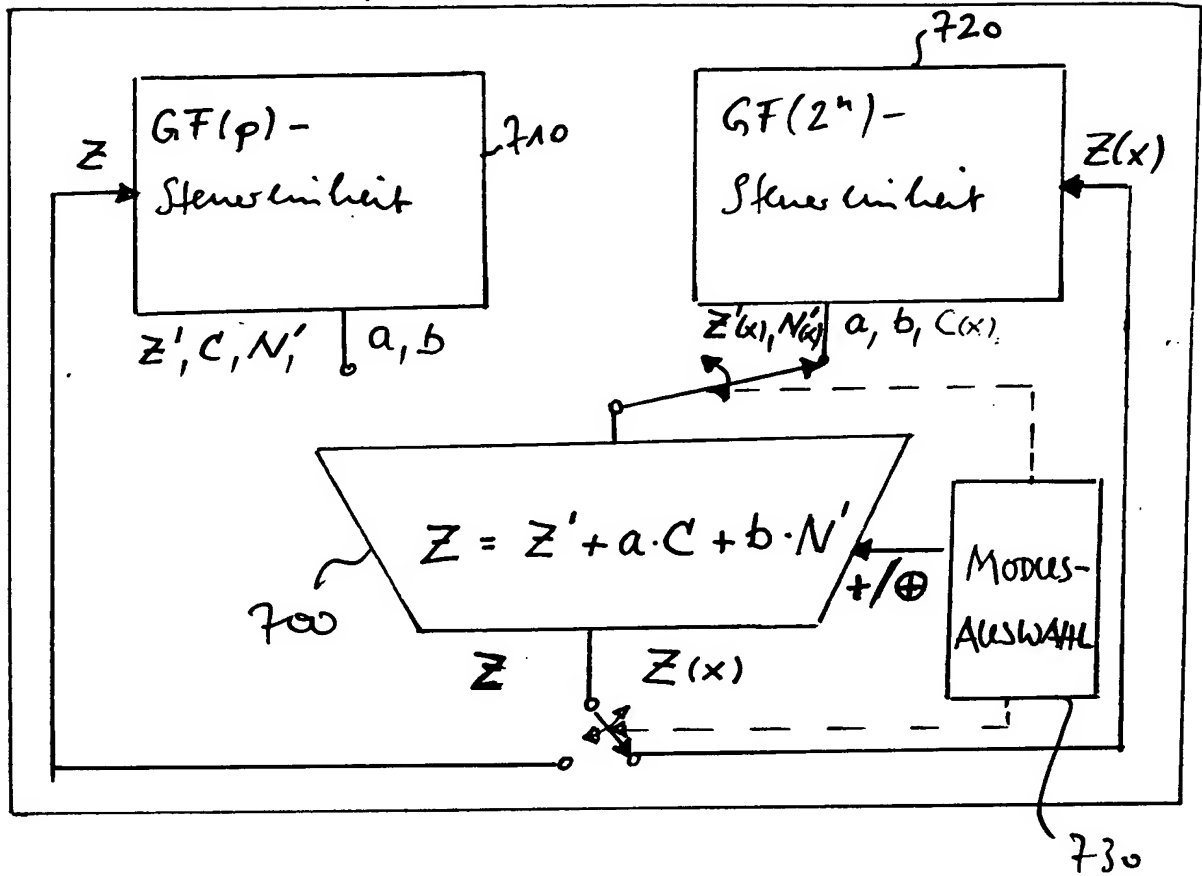 720
GF(p)-
Steuereinheit
710
Z
GF(2ⁿ)-
Steuereinheit
Z(x)
Z', C, N,' a, b
Z'(x), N'(x) a, b, C(x).
Z = Z' + a·C + b·N'
+/⊕
MODUS-
AUSWAHL
700
Z Z(x)
730